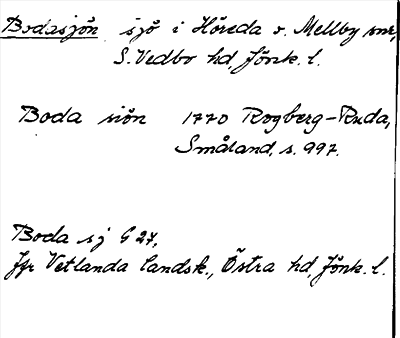 Bodasjön sjö i Höreda o. Mellby snr,
S. Vedbo hd, Jönk. l.
Boda siön 1770 Rogberg-Ruda,
Småland, s. 997.
Boda sj G 27,
Jfr Vetlanda landsk., Östra hd, Jönk. l.